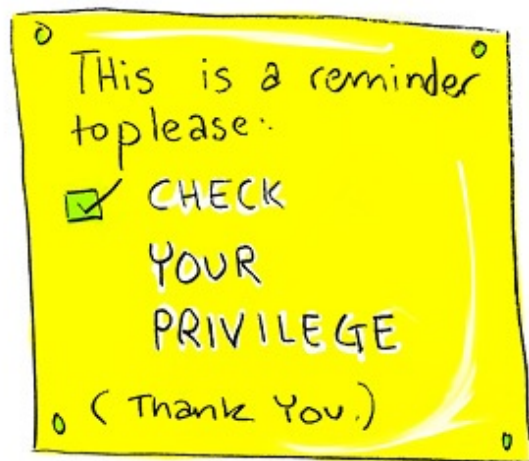 THis is a reminder
to please:
CHECK
YOUR
PRIVILEGE
(Thank You.)